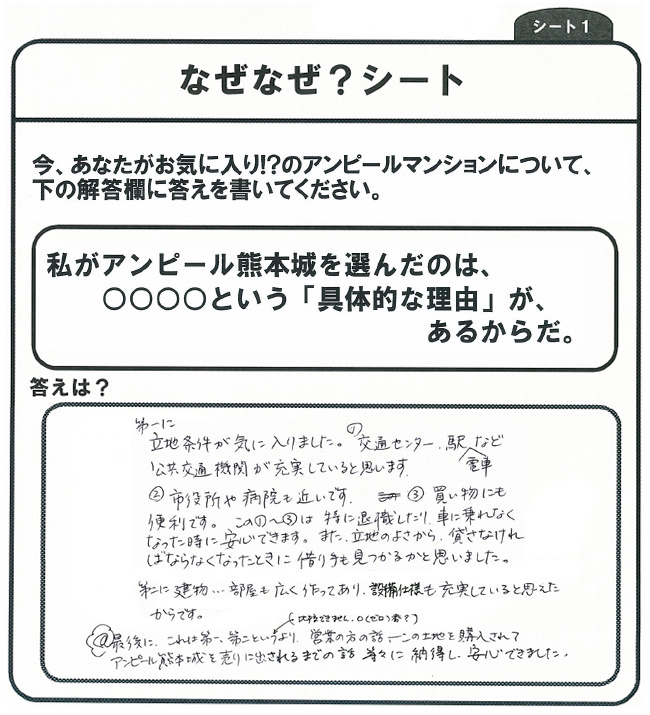 シート1
なぜなぜ？シート
今、あなたがお気に入り!?のアンピールマンションについて、
下の解答欄に答えを書いてください。
私がアンピール熊本城を選んだのは、
○○○○という「具体的な理由」が、
あるからだ。
答えは？
第一に
立地条件が気に入りました。①交通センター、駅、電車など
公共交通機関が充実していると思います
②市役所や病院も近いです。 ③買い物にも
便利です。この①〜③は特に退職したり、車に乗れなく
なった時に安心できます。また、立地のよさから、貸さなけれ
ばならなくなったときに借り手も見つかるかと思いました。
第二に建物…部屋も広く作ってあり、設備仕様も充実していると思えた
からです。
(比較できません。0(ゼロ)番？)
@最後に、これは第一、第二というより、営業の方の話―この土地を購入されて
アンピール熊本城を売りに出されるまでの話 等々に納得し、安心できました。